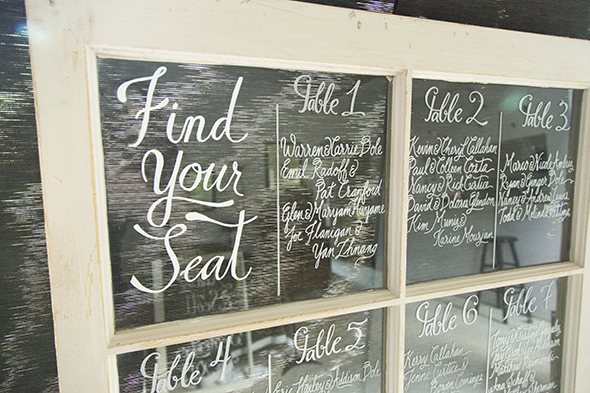 Find
Your
Seat
Table 1
Warren & Carrie Dole
Emil Radoff &
Pat Cranford
Glen & Maryam
Joe Flanigan &
Yan Zhnang
Table 2
Kevin & Cheryl Callahan
Paul & Colleen Costa
Nancy & Rick Curtice
David & Dolores Glendon
Kim Muniz &
Karine Mourjan
Table 3
Marco & Nicole
Ryan & Ginger Dole
Nancy & Andrew
Todd & Melinda
Table 4
Table 5
Eric, Hailey & Addison Dole
Table 6
Kerry Callahan
Jenni Curtice &
Bowen
Table 7